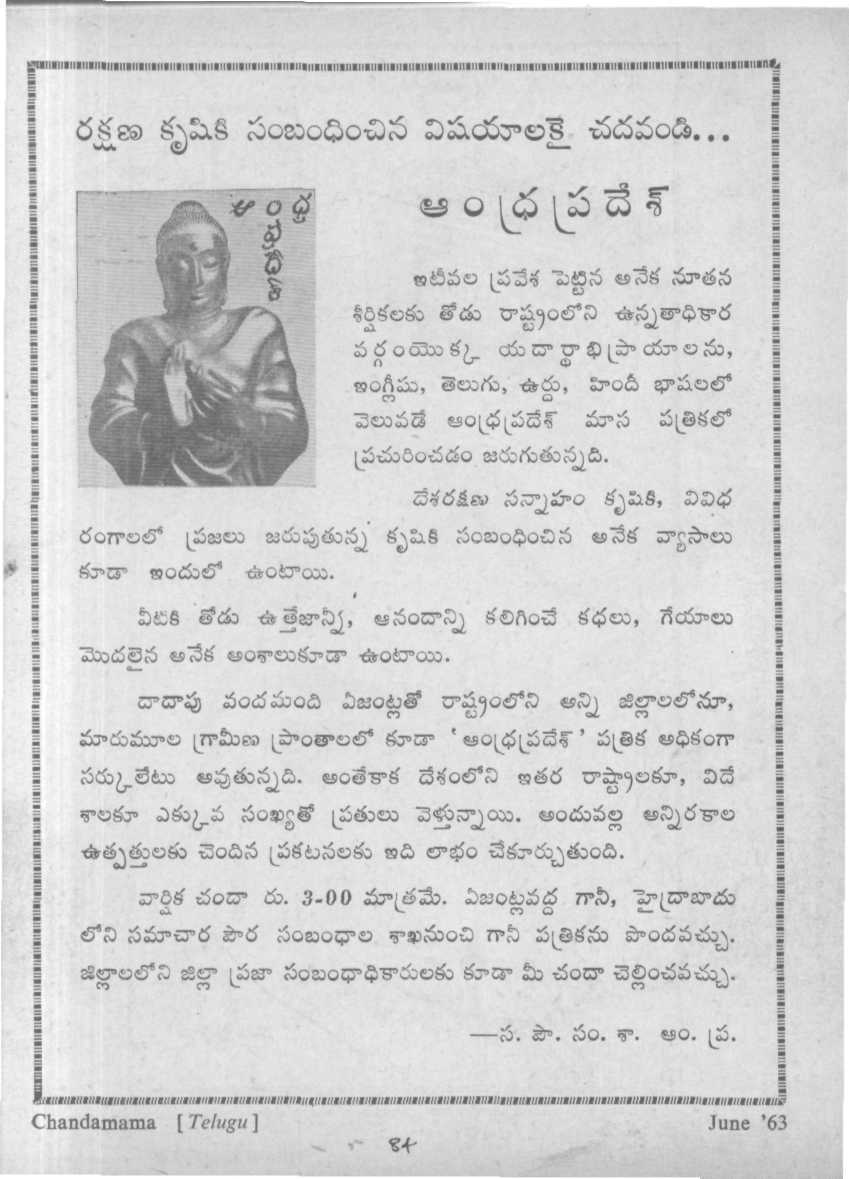 రక్షణ కృషికి సంబంధించిన విషయాలకై చదవండి...
ఆంధ్రప్రదేశ్
ఇటీవల ప్రవేశ పెట్టిన అనేక నూతన
శీర్షికలకు తోడు రాష్ట్రంలోని ఉన్నతాధికార
వర్గంయొక్క యదార్థాభిప్రాయాలను,
ఇంగ్లీషు, తెలుగు, ఉర్దు, హిందీ భాషలలో
వెలువడే ఆంధ్రప్రదేశ్ మాస పత్రికలో
ప్రచురించడం జరుగుతున్నది.
దేశరక్షణ సన్నాహం కృషికి, వివిధ
రంగాలలో ప్రజలు జరుపుతున్న కృషికి సంబంధించిన అనేక వ్యాసాలు
కూడా ఇందులో ఉంటాయి.
వీటికి తోడు ఉత్తేజాన్నీ, ఆనందాన్ని కలిగించే కథలు, గేయాలు
మొదలైన అనేక అంశాలుకూడా ఉంటాయి.
దాదాపు వందమంది ఏజంట్లతో రాష్ట్రంలోని అన్ని జిల్లాలలోనూ,
మారుమూల గ్రామీణ ప్రాంతాలలో కూడా ' ఆంధ్రప్రదేశ్ ' పత్రిక అధికంగా
సర్కులేటు అవుతున్నది. అంతేకాక దేశంలోని ఇతర రాష్ట్రాలకూ, విదే
శాలకూ ఎక్కువ సంఖ్యతో ప్రతులు వెళ్తున్నాయి. అందువల్ల అన్నిరకాల
ఉత్పత్తులకు చెందిన ప్రకటనలకు ఇది లాభం చేకూర్చుతుంది.
వార్షిక చందా రు. 3-00 మాత్రమే. ఏజంట్లవద్ద గానీ, హైద్రాబాదు
లోని సమాచార పౌర సంబంధాల శాఖనుంచి గానీ పత్రికను పొందవచ్చు.
జిల్లాలలోని జిల్లా ప్రజా సంబంధాధికారులకు కూడా మీ చందా చెల్లించవచ్చు.
—స. పౌ. సం. శా. ఆం. ప్ర.
Chandamama [ Telugu ]
June '63
84